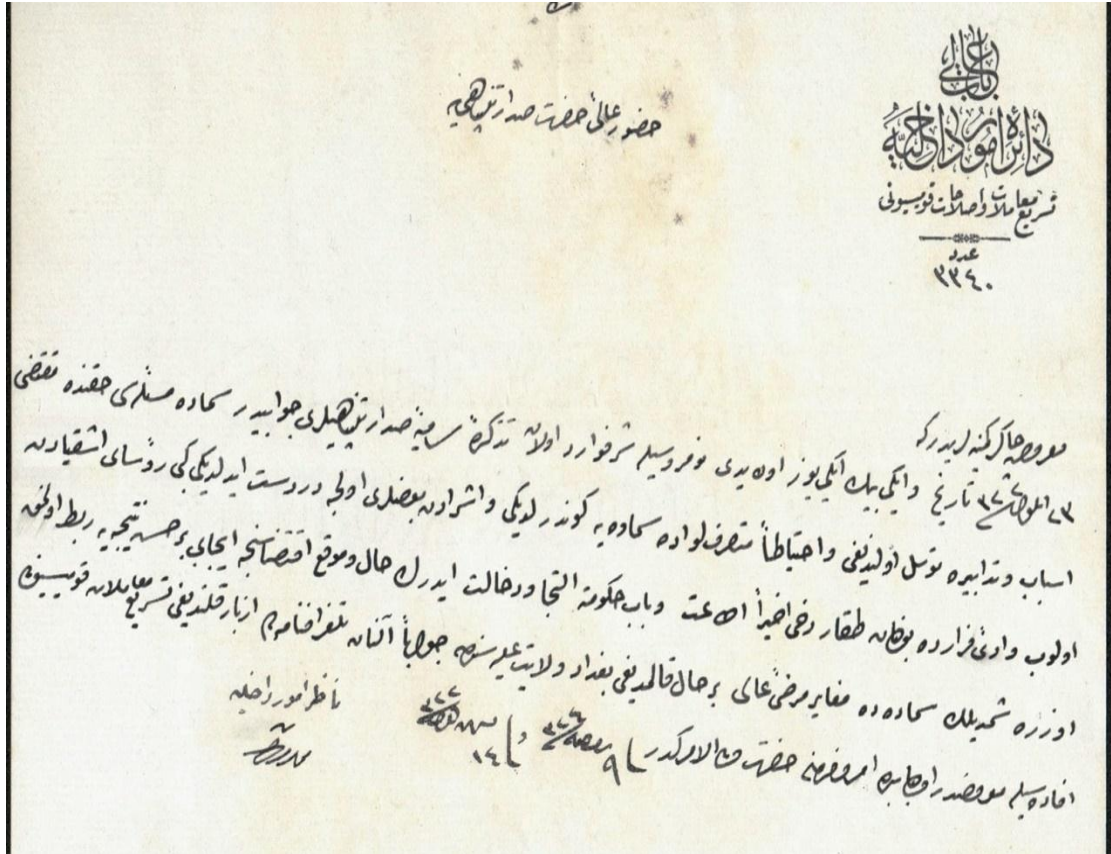 باب عالی
دائرهٔ امور داخلیه
تسریع معاملات و اصلاحات قومیسیونی
عدد
٣٣٤٠
حضور عالیٔ حضرت صدارتپناهی‌یه
معروض چاکر کمینه‌لریدر که
٢٣ تاریخ و ایکی بیك ایکیوز اون یدی نومروسیله شرفوارد اولان تذکرهٔ سامیهٔ صدارتپناهیلری جوابیدر سماوه مسئله‌سی حقنده مقتضی
اسباب و تدابیره توسل اولندیغی و احتیاطاً متصرف لواده سماوه‌یه کوندرلدیکی و اشرادن بعضلری اولجه دردست ایدلدیکی کبی رؤسای اشقیادن
اولوب وادیٔ فرارده بولنان دخی اخیراً اطاعت و باب حکومته التجا و دخالت ایدرك حال و موقع اقتضاسنجه ایجابی بر حسن نتیجه‌یه ربط اولنمق
اوزره شمدیلك سماوه‌ده مغایر مرضیٔ عالی بر حال قالمدیغی بغداد ولایت علیه‌سندن جواباً آلنان تلغرافنامه‌ده ازبار قلندیغی تسریع معاملات قومیسیونی
افاده‌سیله معروضدر اولبابده امر و فرمان حضرت من له الامرکدر ٩ ٣٢٤ و ١٤ ٣٢٢
ناظر امور داخلیه